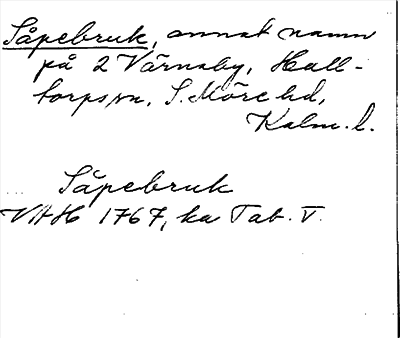 Såpebruk, annat namn
på 2 Värnaby, Hall-
torps sn, S. Möre hd,
Kalm. l.
Såpebruk
VAH 1767, ka Tab. V.